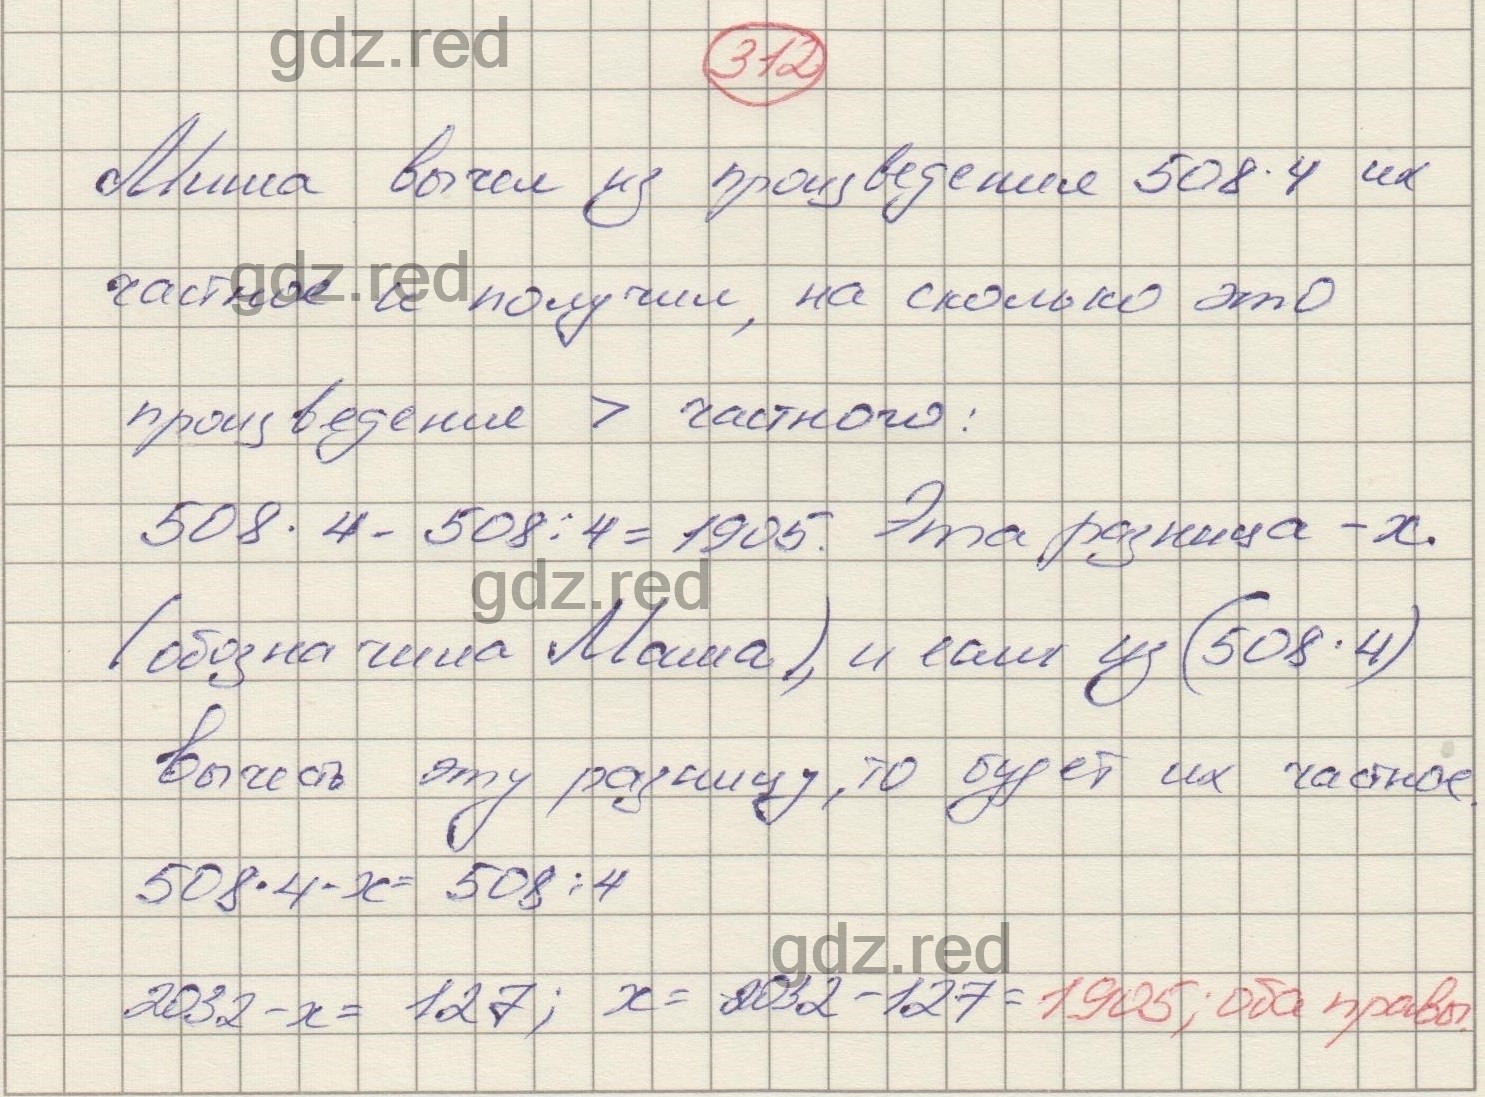 gdz.red
312
Миша вычел из произведения 508·4 их
gdz.red
частное и получил, на сколько это
произведение > частного:
508·4-508:4=1905. Эта разница-х.
gdz.red
(обозначила Маша), и если из (508·4)
вычесть эту разницу, то будет их частное.
508·4-х=508:4
gdz.red
2032-х=127; х=2032-127=1905; оба правы.